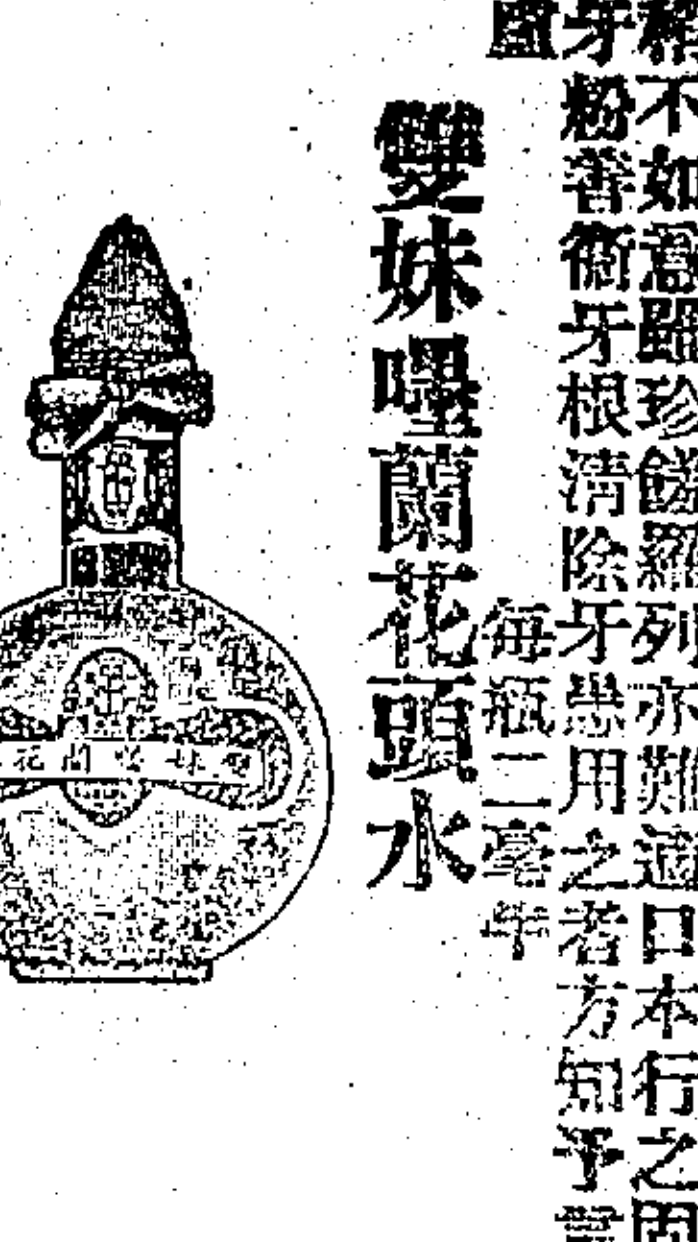 不如意雖珍饈羅列亦難適口本行之固
牙粉善衛牙根清除牙患用之者方知予言
每瓶二毫半
雙妹嚜蘭花頭水
雙妹嚜蘭花